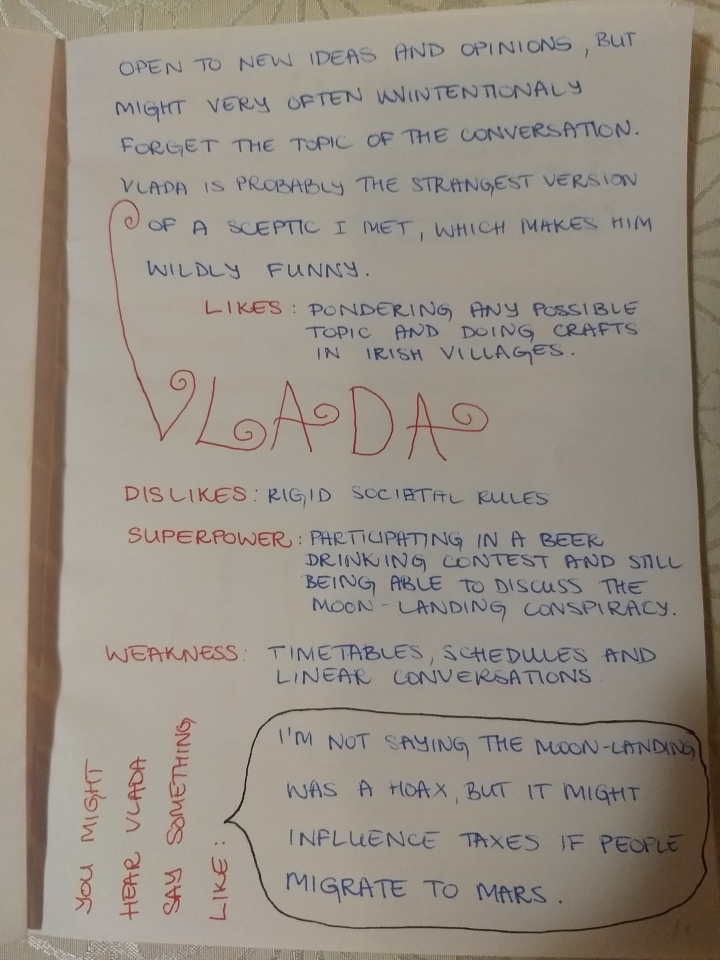 OPEN TO NEW IDEAS AND OPINIONS, BUT
MIGHT VERY OFTEN UNINTENTIONALY
FORGET THE TOPIC OF THE CONVERSATION.
VLADA IS PROBABLY THE STRANGEST VERSION
OF A SCEPTIC I MET, WHICH MAKES HIM
WILDLY FUNNY.
LIKES: PONDERING ANY POSSIBLE
TOPIC AND DOING CRAFTS
IN IRISH VILLAGES.
VLADA
DISLIKES: RIGID SOCIETAL RULES
SUPERPOWER: PARTICIPATING IN A BEER
DRINKING CONTEST AND STILL
BEING ABLE TO DISCUSS THE
MOON-LANDING CONSPIRACY.
WEAKNESS: TIMETABLES, SCHEDULES AND
LINEAR CONVERSATIONS.
YOU MIGHT
HEAR VLADA
SAY SOMETHING
LIKE:
I'M NOT SAYING THE MOON-LANDING
WAS A HOAX, BUT IT MIGHT
INFLUENCE TAXES IF PEOPLE
MIGRATE TO MARS.